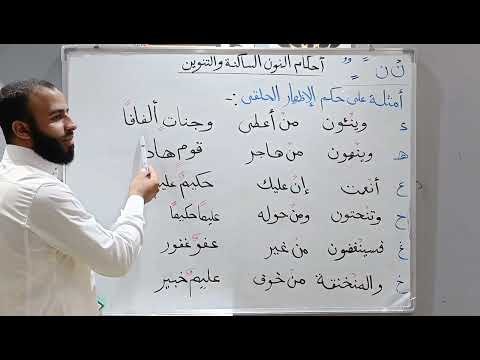 أحكام النون الساكنة والتنوين نْ ن ـًـٍـٌ
أمثلة على حكم الإظهار الحلقي :-
ء وينْئون منْ أعطى وجناتٍ ألفافًا
هـ وينْهون منْ هاجر قومٍ هاد
ع أنْعمت إنْ عليك حكيمٌ عليم
ح وتنْحتون ومنْ حوله عليمًا حكيمًا
غ فسينْغضون منْ غير عفوٌّ غفور
خ والمنْخنقة منْ خوف عليمٌ خبير